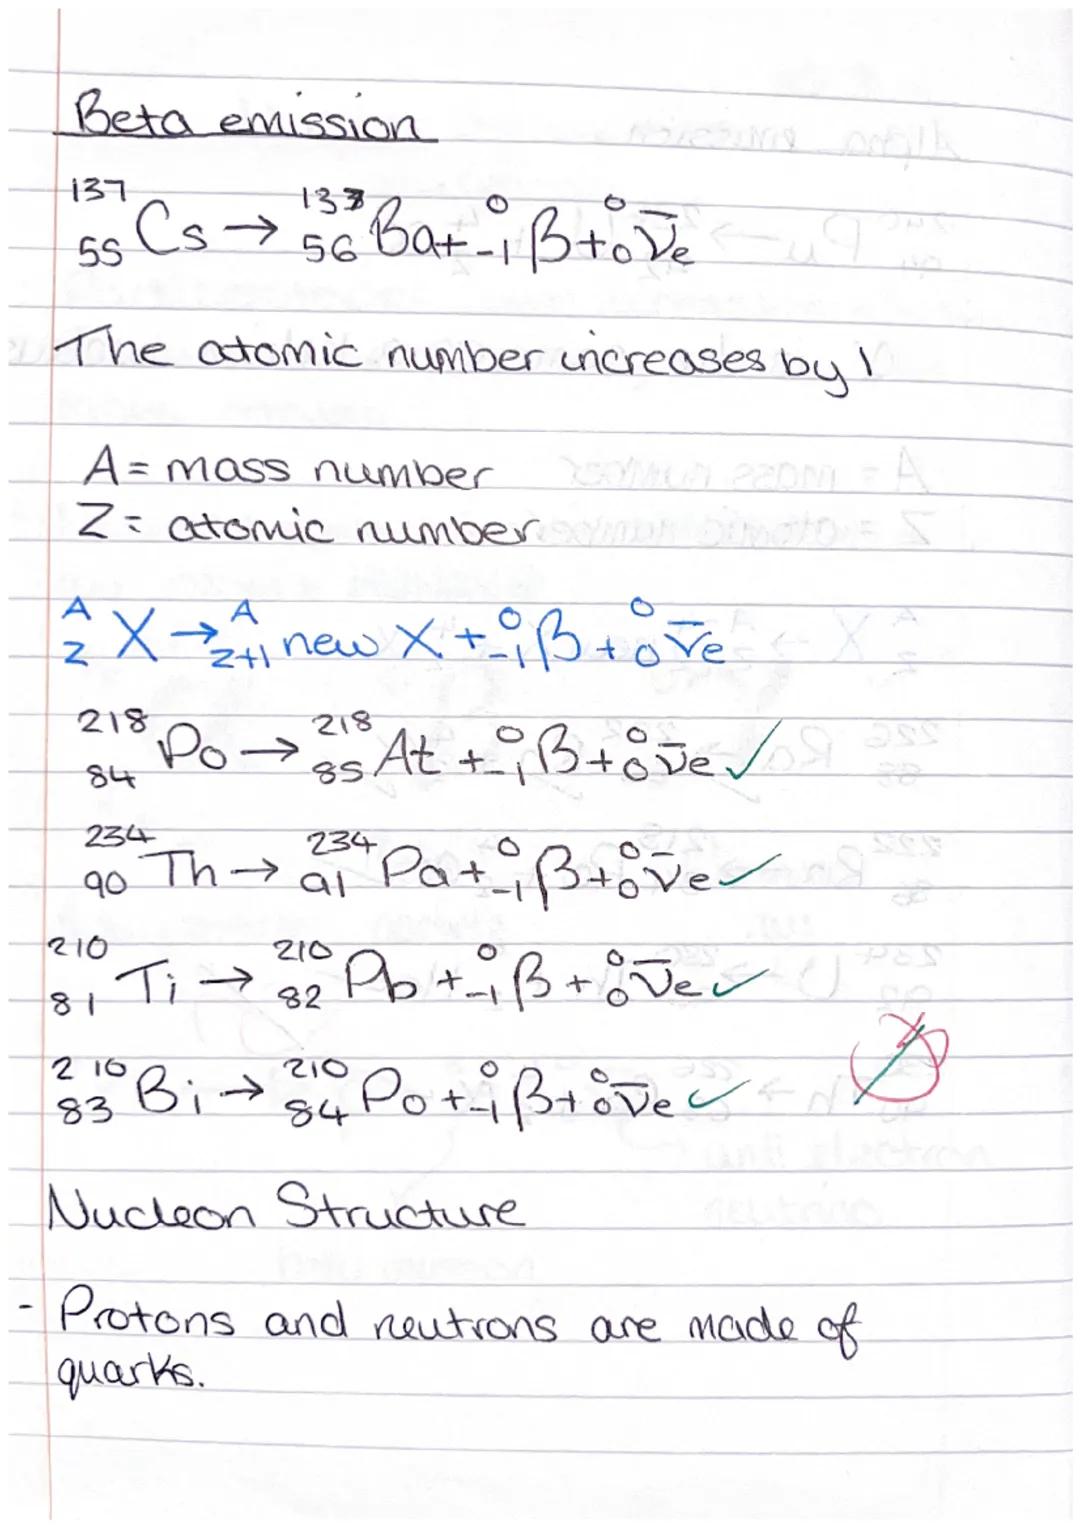 Beta emission
¹³⁷₅₅Cs → ¹³⁷₅₆Ba + ⁰₋₁β + ⁰₀ν̅e
The atomic number increases by 1
A = mass number
Z = atomic number
ᴬzX → ᴬz+1 new X + ⁰₋₁β + ⁰₀ν̅e
²¹⁸₈₄Po → ²¹⁸₈₅At + ⁰₋₁β + ⁰₀ν̅e ✓
²³⁴₉₀Th → ²³⁴₉₁Pa + ⁰₋₁β + ⁰₀ν̅e ✓
²¹⁰₈₁Ti → ²¹⁰₈₂Pb + ⁰₋₁β + ⁰₀ν̅e ✓
²¹⁰₈₃Bi → ²¹⁰₈₄Po + ⁰₋₁β + ⁰₀ν̅e ✓
Nucleon Structure
- Protons and neutrons are made of
quarks.